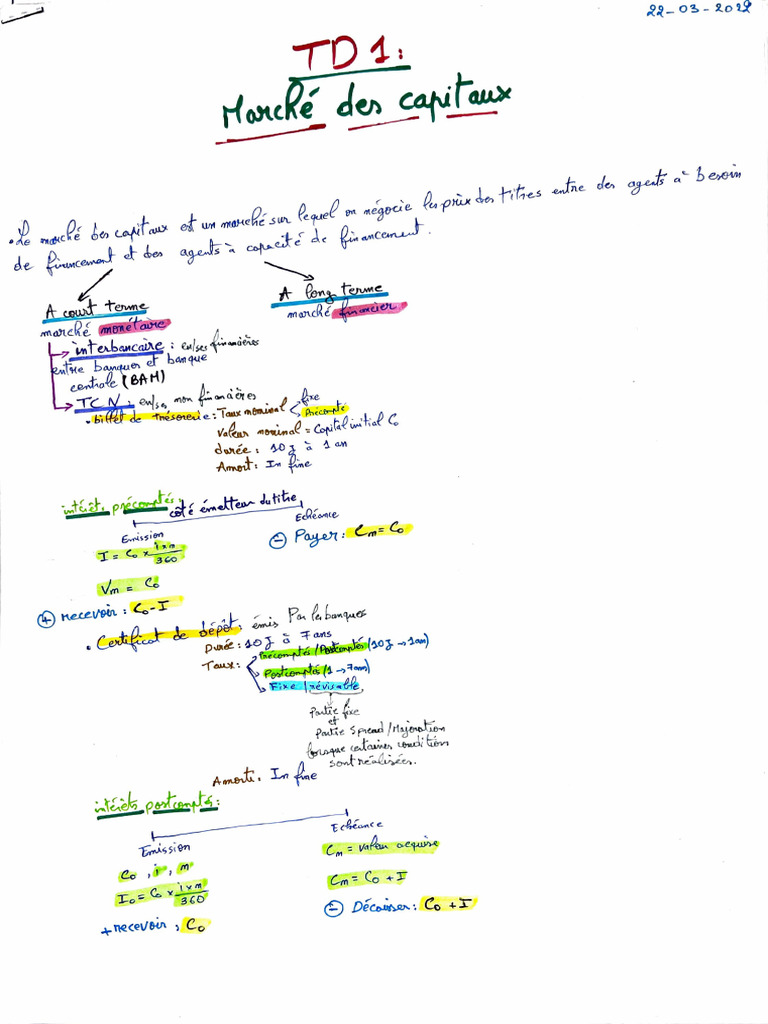 22-03-2022
TD1:
Marché des capitaux
• Le marché des capitaux est un marché sur lequel on négocie les prix des titres entre des agents à Besoin
de financement et des agents à capacité de financement.
A court terme
marché monétaire
A long terme
marché financier
interbancaire : en/ses financières
entre banques et banque
centrale (BAM)
TCN : en/ses non financières
• billet de trésorerie : Taux nominal
fixe
Précompté
Valeur nominal = Capital initial C0
durée : 10J à 1 an
Amort : In fine
intérêts précomptés :
côté émetteur du titre
Emission
I = C0 × i×n/360
Vn = C0
+ recevoir : C0 - I
Echéance
- Payer : Cn = C0
• Certificat de dépôt : émis Par les banques
Durée : 10J à 7 ans
Taux :
Précomptés/Postcomptés (10J → 1an)
Postcomptés (1 → 7ans)
Fixe / révisable
Partie fixe
et
Partie Spread / Majoration
lorsque certaines condition
sont réalisées.
Amorti : In fine
intérêts postcomptés :
Emission
C0 , i , n
I0 = C0 × i×n/360
+ recevoir : C0
Echéance
Cn = valeur acquise
Cn = C0 + I
- Décaisser : C0 + I